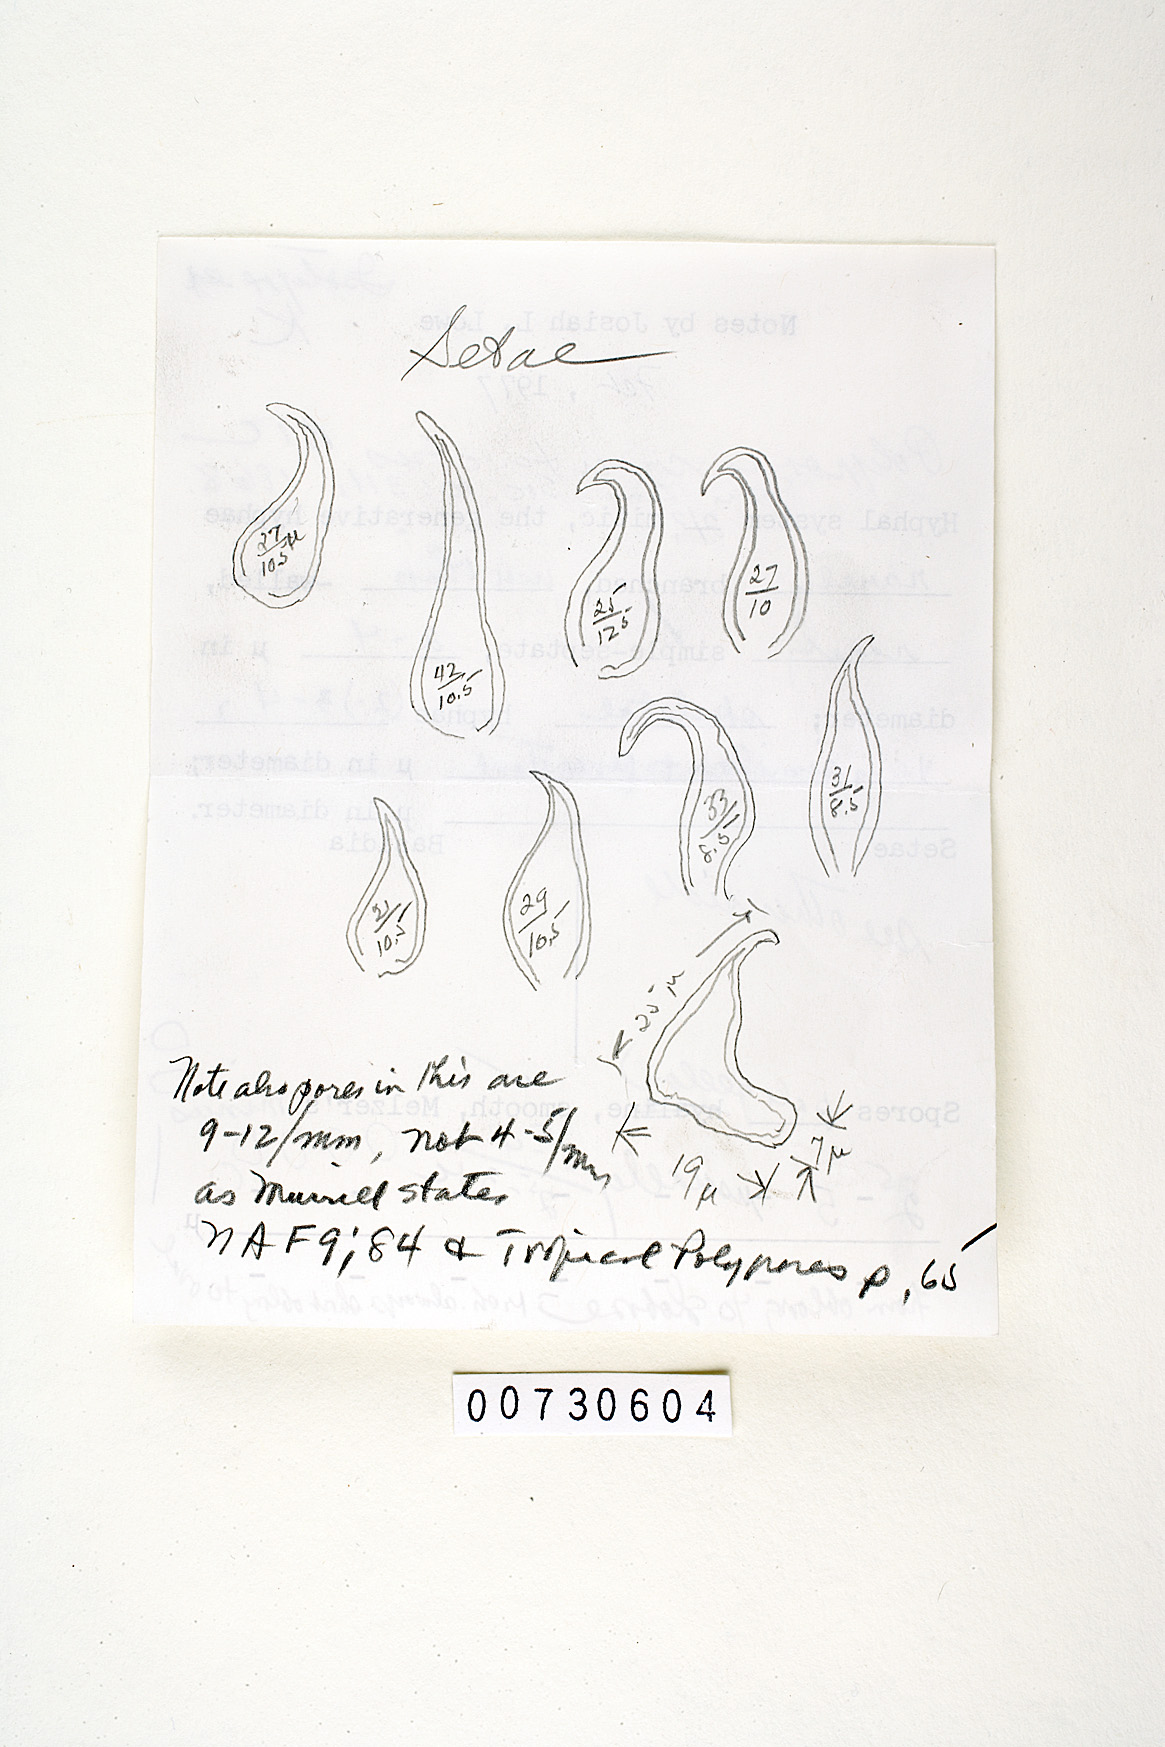 Setae
27/10.5µ
42/10.5
25/12.5
27/10
31/8.5
33/8.5
21/10.5
29/10.5
25 µ
19 µ
7 µ
Note also pores in this are
9-12/mm, not 4-5/mm,
as Murrill states
NAF 9:84 & Tropical Polypores p. 65
00730604